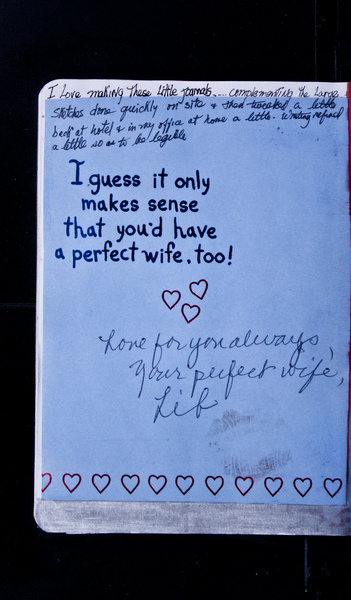 I Love making These little journals..... complementing the Large
sketches done quickly on site & then tweaked a little
back at hotel & in my office at home a little. Writing refined
a little so as to be legible
I guess it only
makes sense
that you'd have
a perfect wife, too!
Love for you always,
Your perfect wife,
Lib